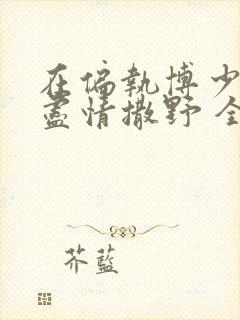 在偏執博少
盡情撒野 全
芥藍